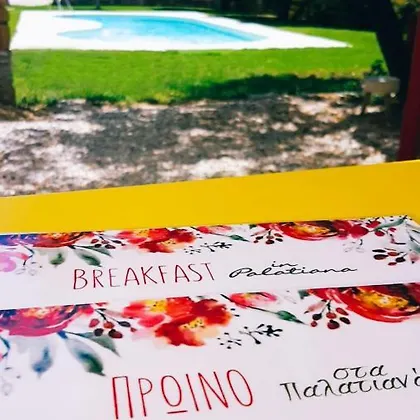 BREAKFAST in Palatiana
ΠΡΩΙΝΟ στα Παλατιανά